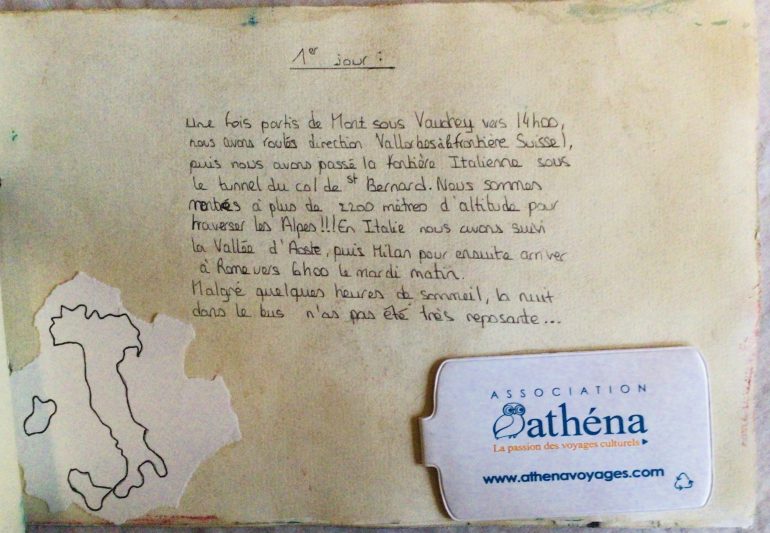 1er jour :
Une fois partis de Mont sous Vaudrey vers 14h00,
nous avons roulés direction Vallorbes à la frontière Suisse),
puis nous avons passé la fontière Italienne sous
le tunnel du col de st Bernard. Nous sommes
montés à plus de 2200 mètres d'altitude pour
traverser les Alpes!!! En Italie nous avons suivi
la Vallée d'Aoste, puis Milan pour ensuite arriver
à Rome vers 6h00 le mardi matin.
Malgré quelques heures de sommeil, la nuit
dans le bus n'as pas été très reposante...
ASSOCIATION
athéna
La passion des voyages culturels
www.athenavoyages.com